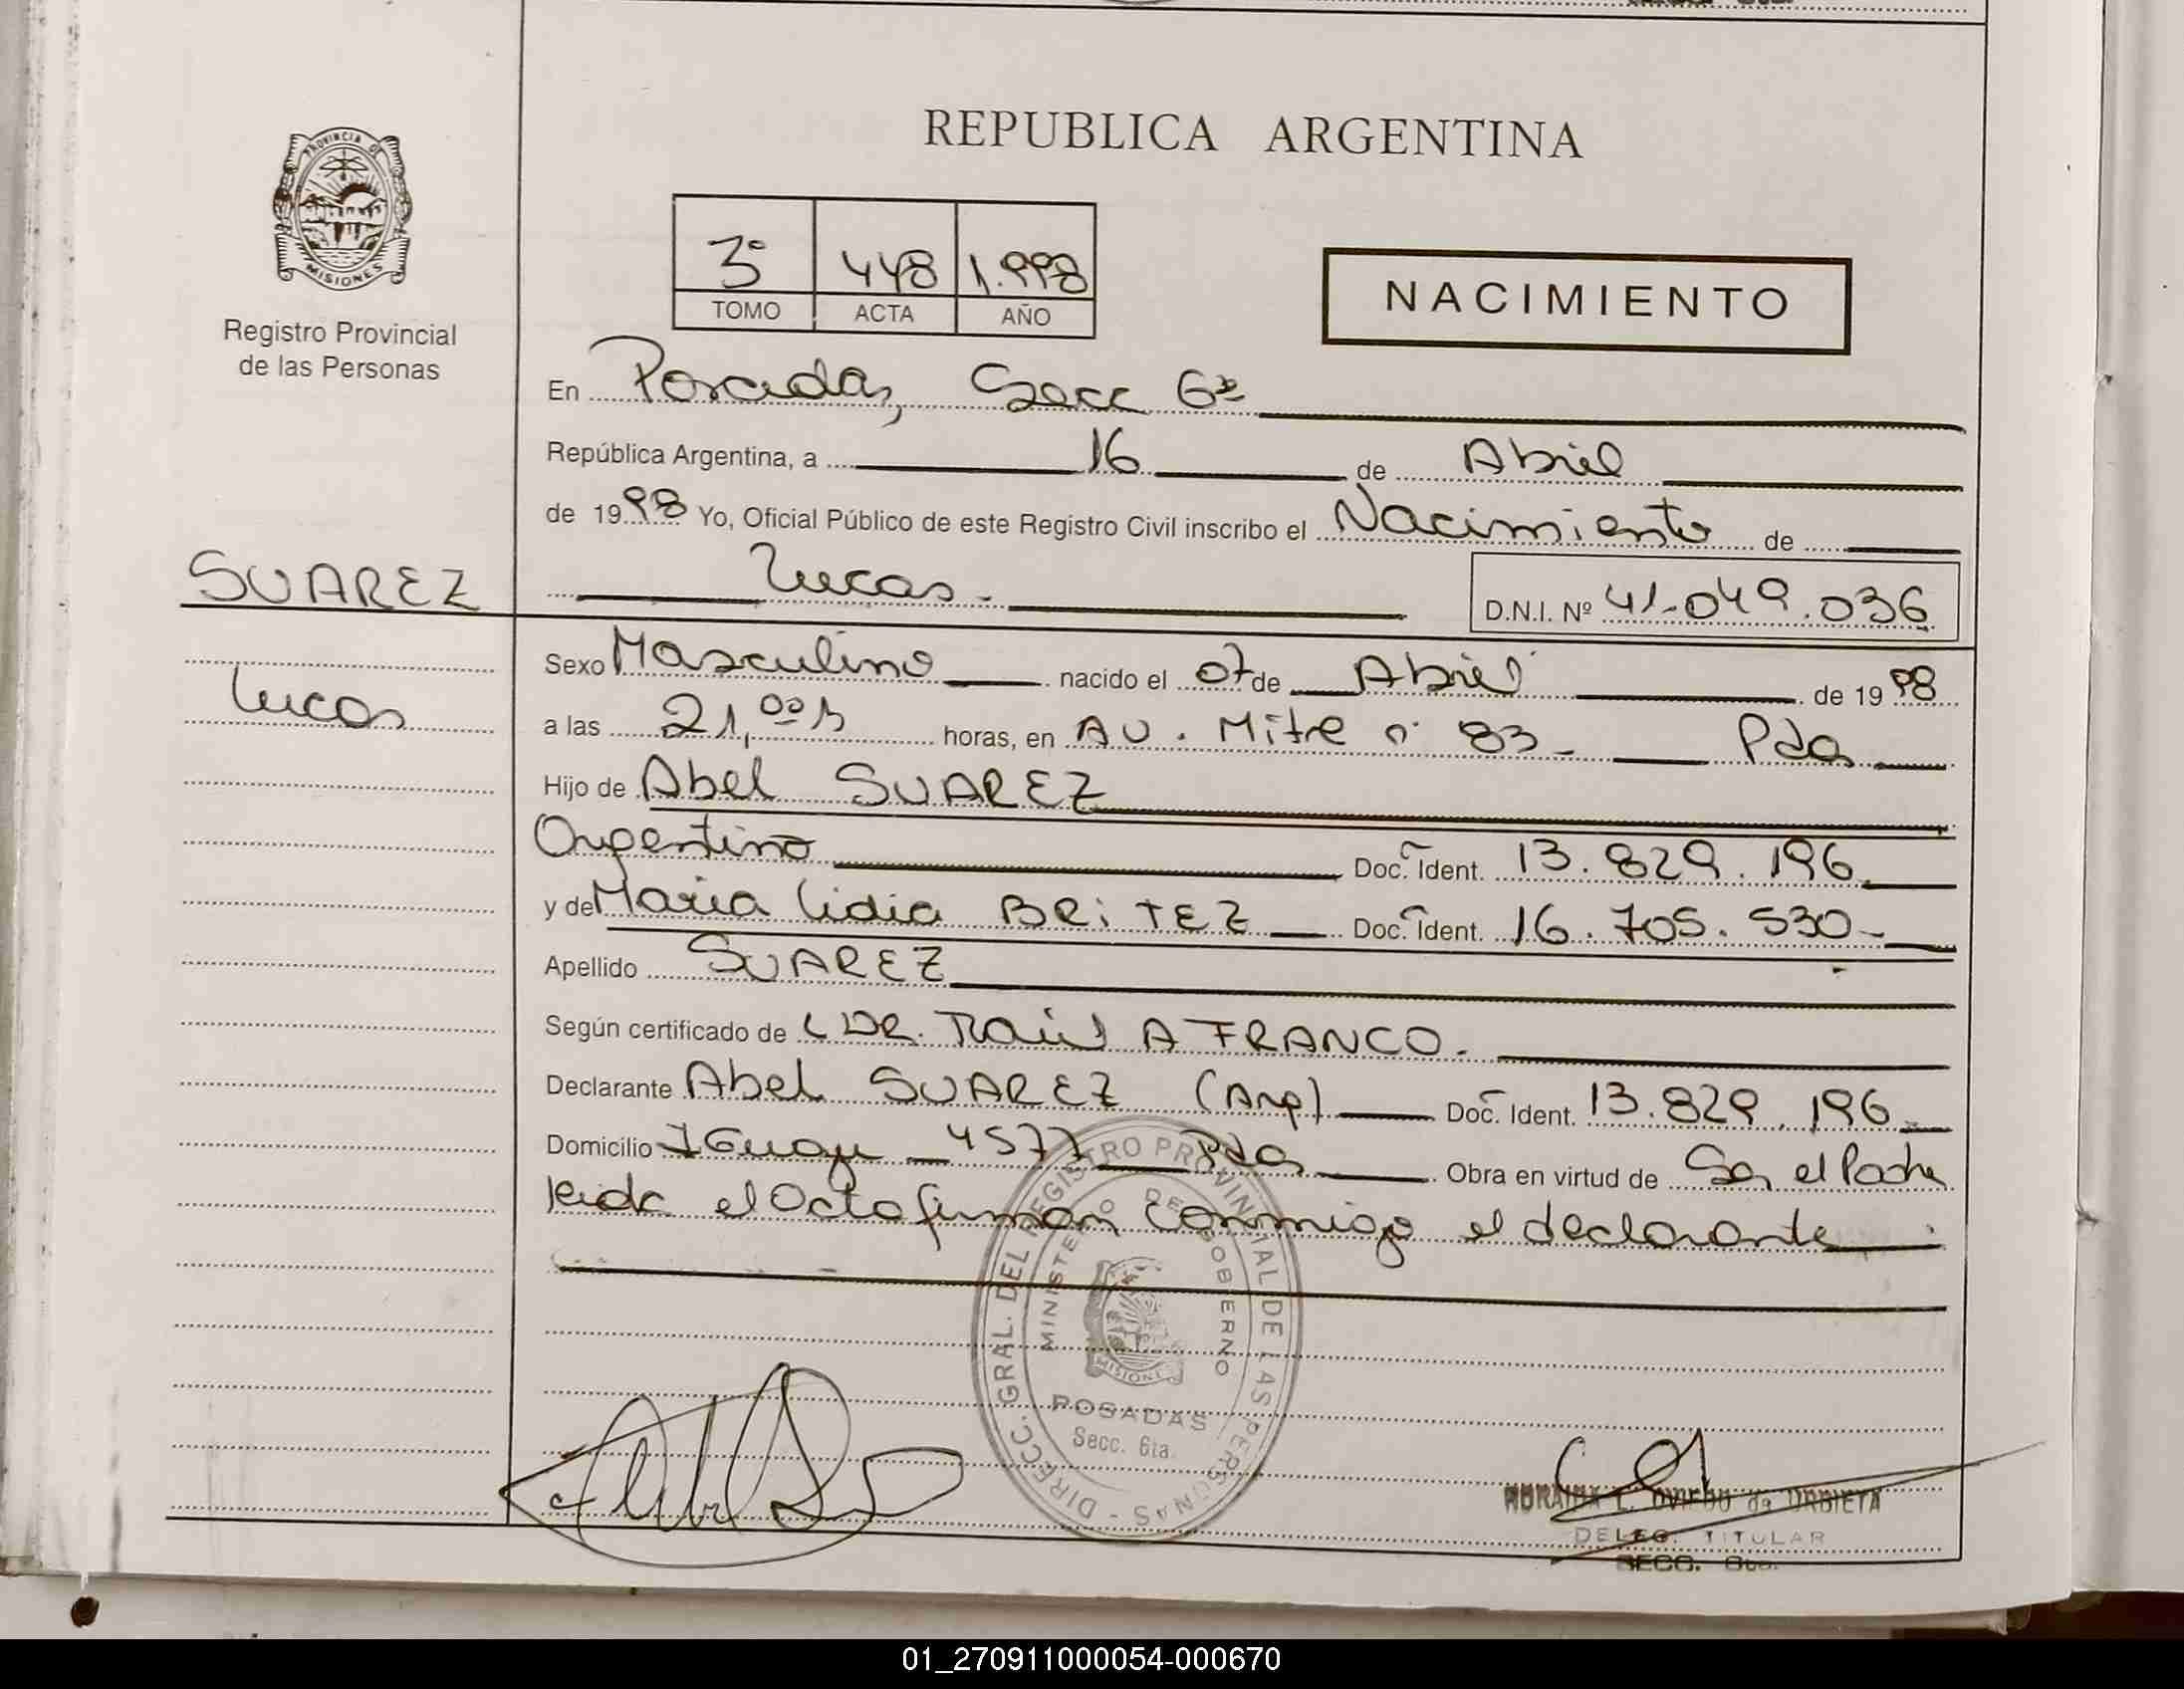 PROVINCIA DE
MISIONES
Registro Provincial
de las Personas
SUAREZ
Lucas
REPUBLICA ARGENTINA
3º 448 1.998
TOMO ACTA AÑO
NACIMIENTO
En Posadas, Secc 6ª
República Argentina, a 16 de Abril
de 1998 Yo, Oficial Público de este Registro Civil inscribo el Nacimiento de
Lucas - D.N.I. Nº 41.049.036
Sexo Masculino nacido el 07 de Abril de 1998
a las 21,00 h horas, en AV. Mitre nº 83 - Pdas
Hijo de Abel SUAREZ
Argentino Doc. Ident. 13.829.196
y de Maria Lidia BRiTEZ Doc. Ident. 16.705.530-
Apellido SUAREZ
Según certificado de DR. Raúl A FRANCO.
Declarante Abel SUAREZ (Arg) Doc. Ident. 13.829.196
Domicilio 4577 Pdas Obra en virtud de Ser el Padre
leida el Acta firman conmigo el declarante
DIRECC. GRAL. DEL REGISTRO PROVINCIAL DE LAS PERSONAS -
MINISTERIO DE GOBIERNO
MISIONES
POSADAS
Secc. 6ta.
L. OVIEDO de URBIETA
DELEG. TITULAR
SECC. 6ta.
01_270911000054-000670